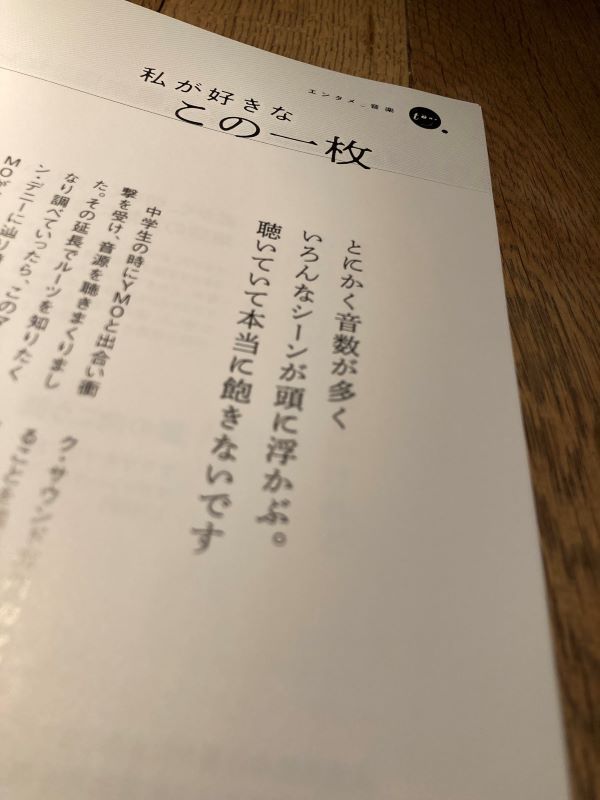 エンタメ_音楽
私が好きな
この一枚
とにかく音数が多く
いろんなシーンが頭に浮かぶ。
聴いていて本当に飽きないです
中学生の時にYMOと出合い衝
撃を受け、音源を聴きまくりまし
た。その延長でルーツを知りたく
なり調べていったら、このマ
ン・デニーに辿り
MOが
ク・サウンド
ることを